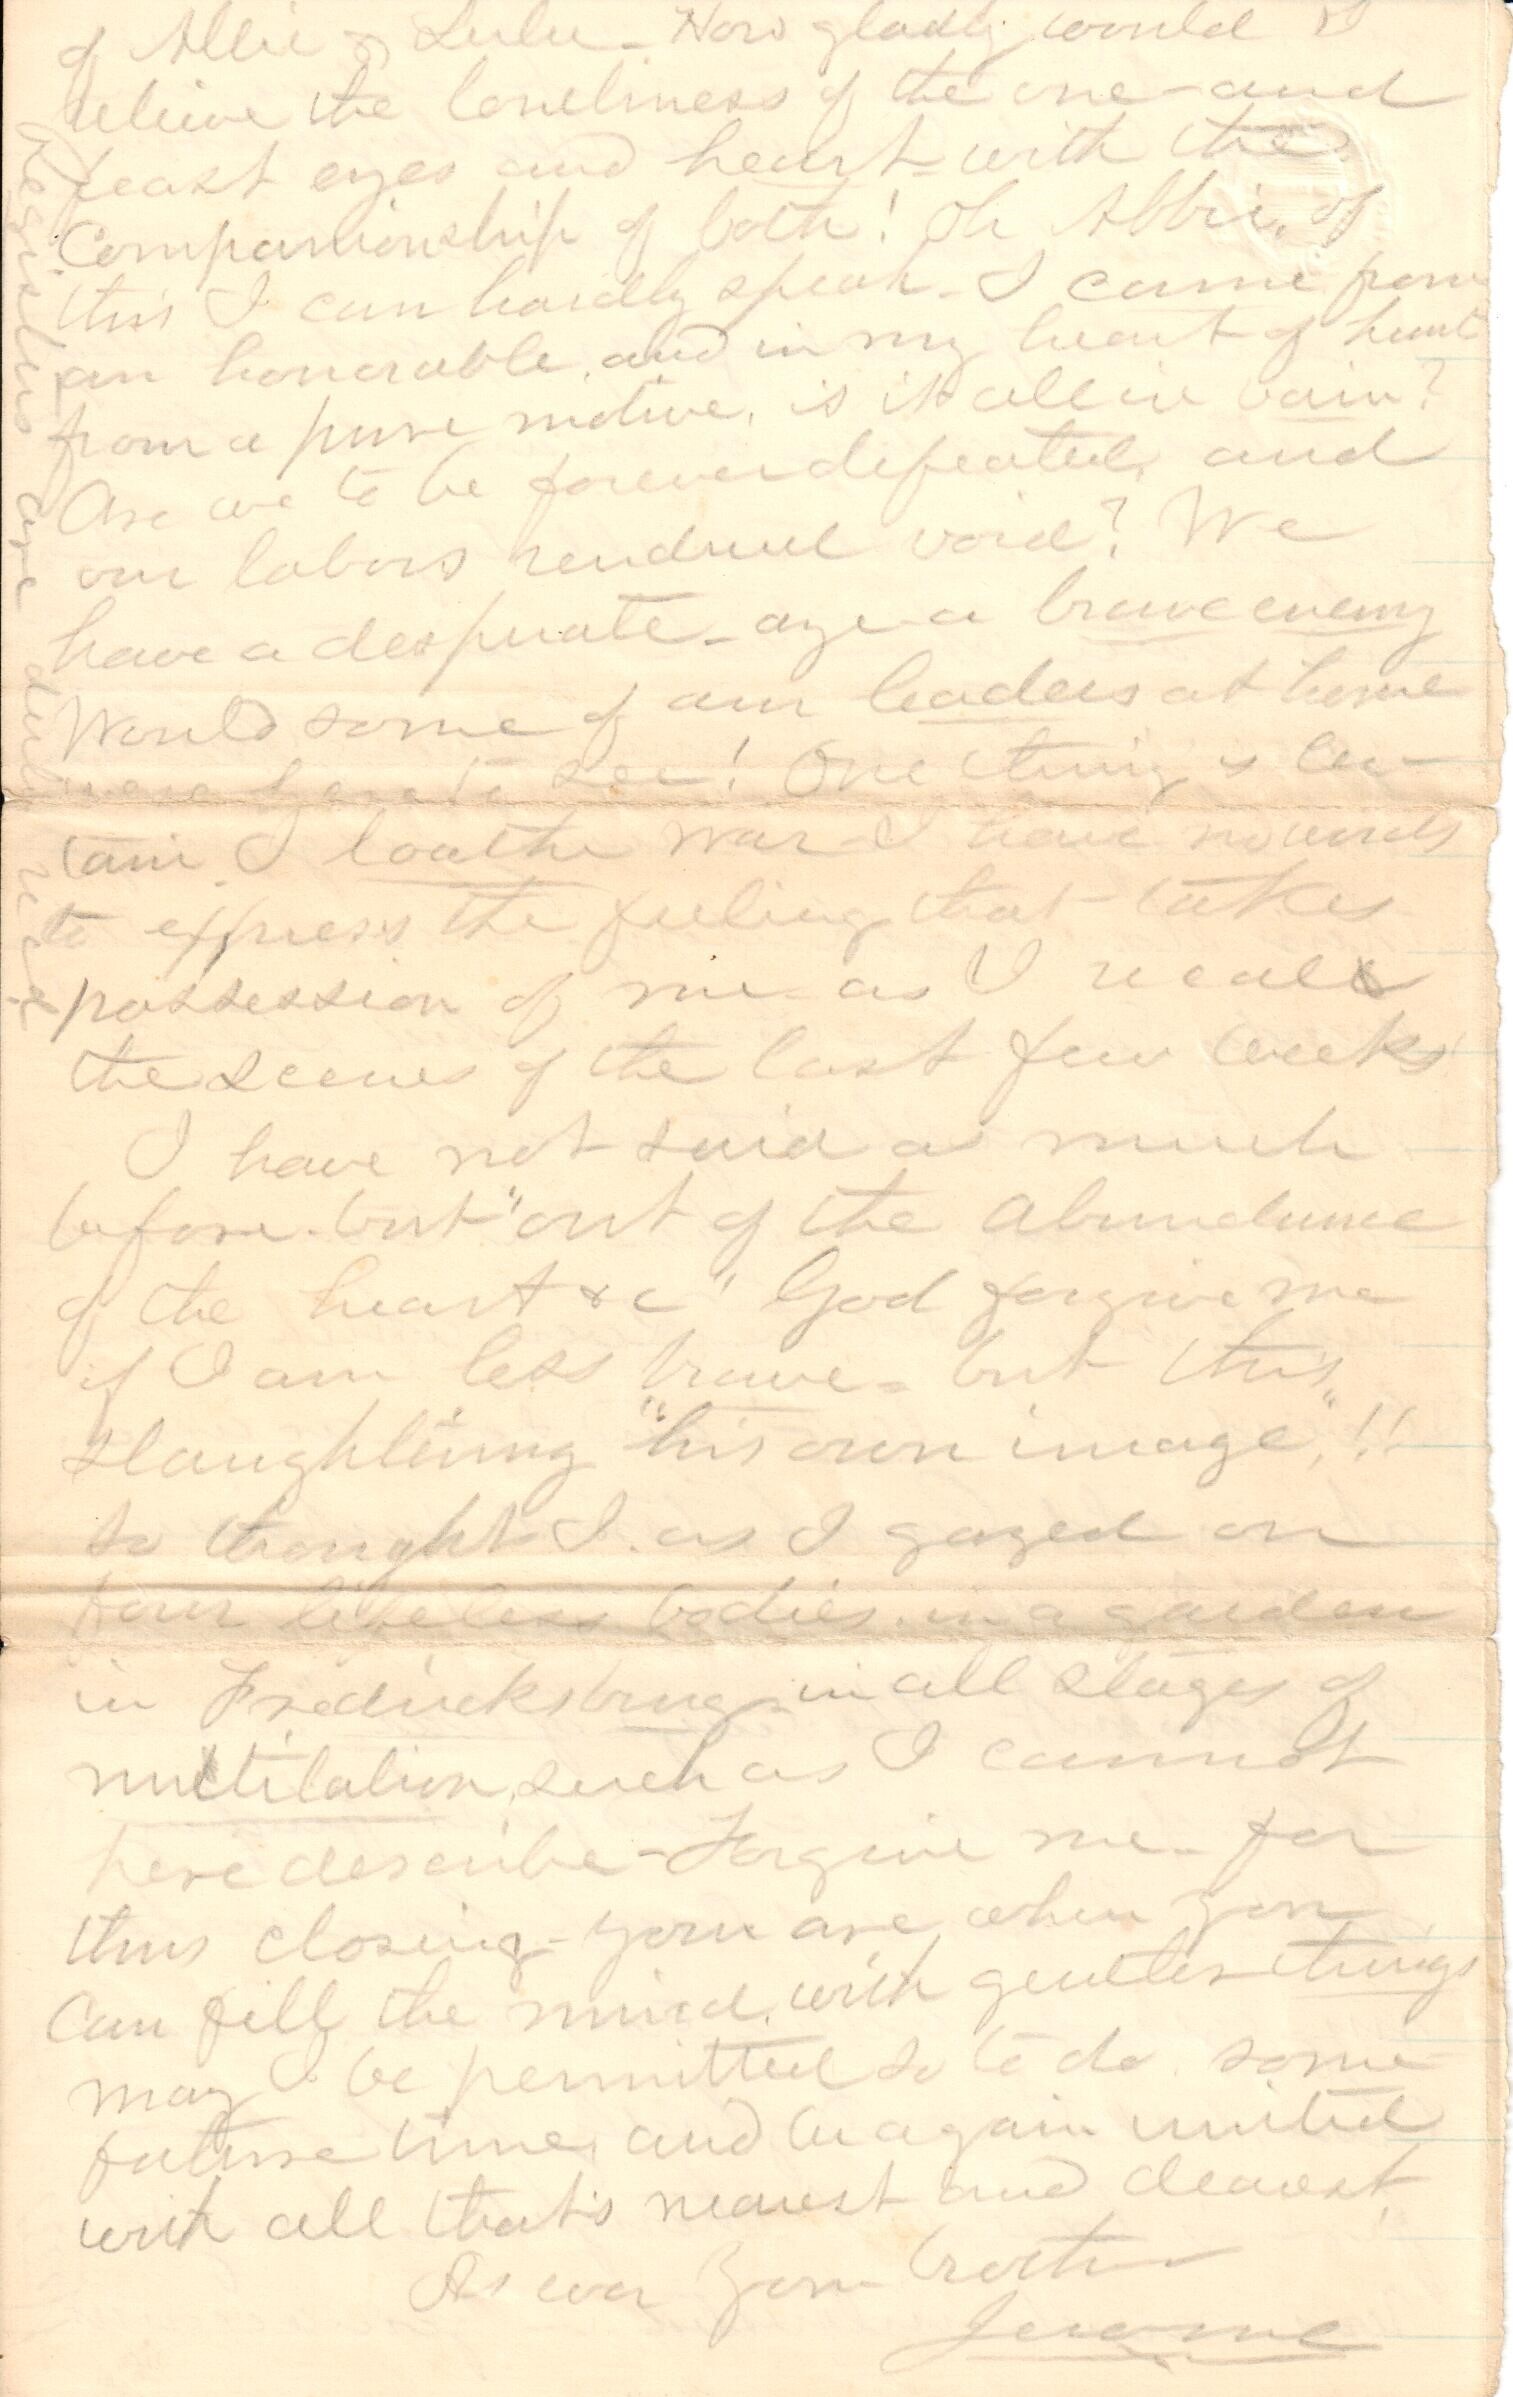 of Allie & Lulu - How gladly would I
relieve the loneliness of the one - and
feast eyes and heart - with the
Companionship of both! Oh Abbie, of
this I can hardly speak - I came from
an honorable, and in my heart of heart
from a pure motive, is it all in vain?
Are we to be forever defeated, and
our labors rendered void? We
have a desperate - aye a brave enemy
Would some of our leaders at home
were here to see! One thing is cer-
tain I loathe war - I have no words
to express the feeling that takes
possession of me as I recall
the scenes of the last few weeks
I have not said as much
before - but "out of the abundance
of the heart &c" God forgive me
if I am less brave - but this
slaughtering "his own image",!!
so thought I as I gazed on
four lifeless bodies in a garden
in Fredricksburg - in all stages of
mutilation, such as I cannot
here describe - Forgive me - for
thus closing - you are when you
can fill the mind, with gentler things
may I be permitted so to do some
future time, and be again united
with all that's nearest and dearest,
As ever Your brother
Jerome